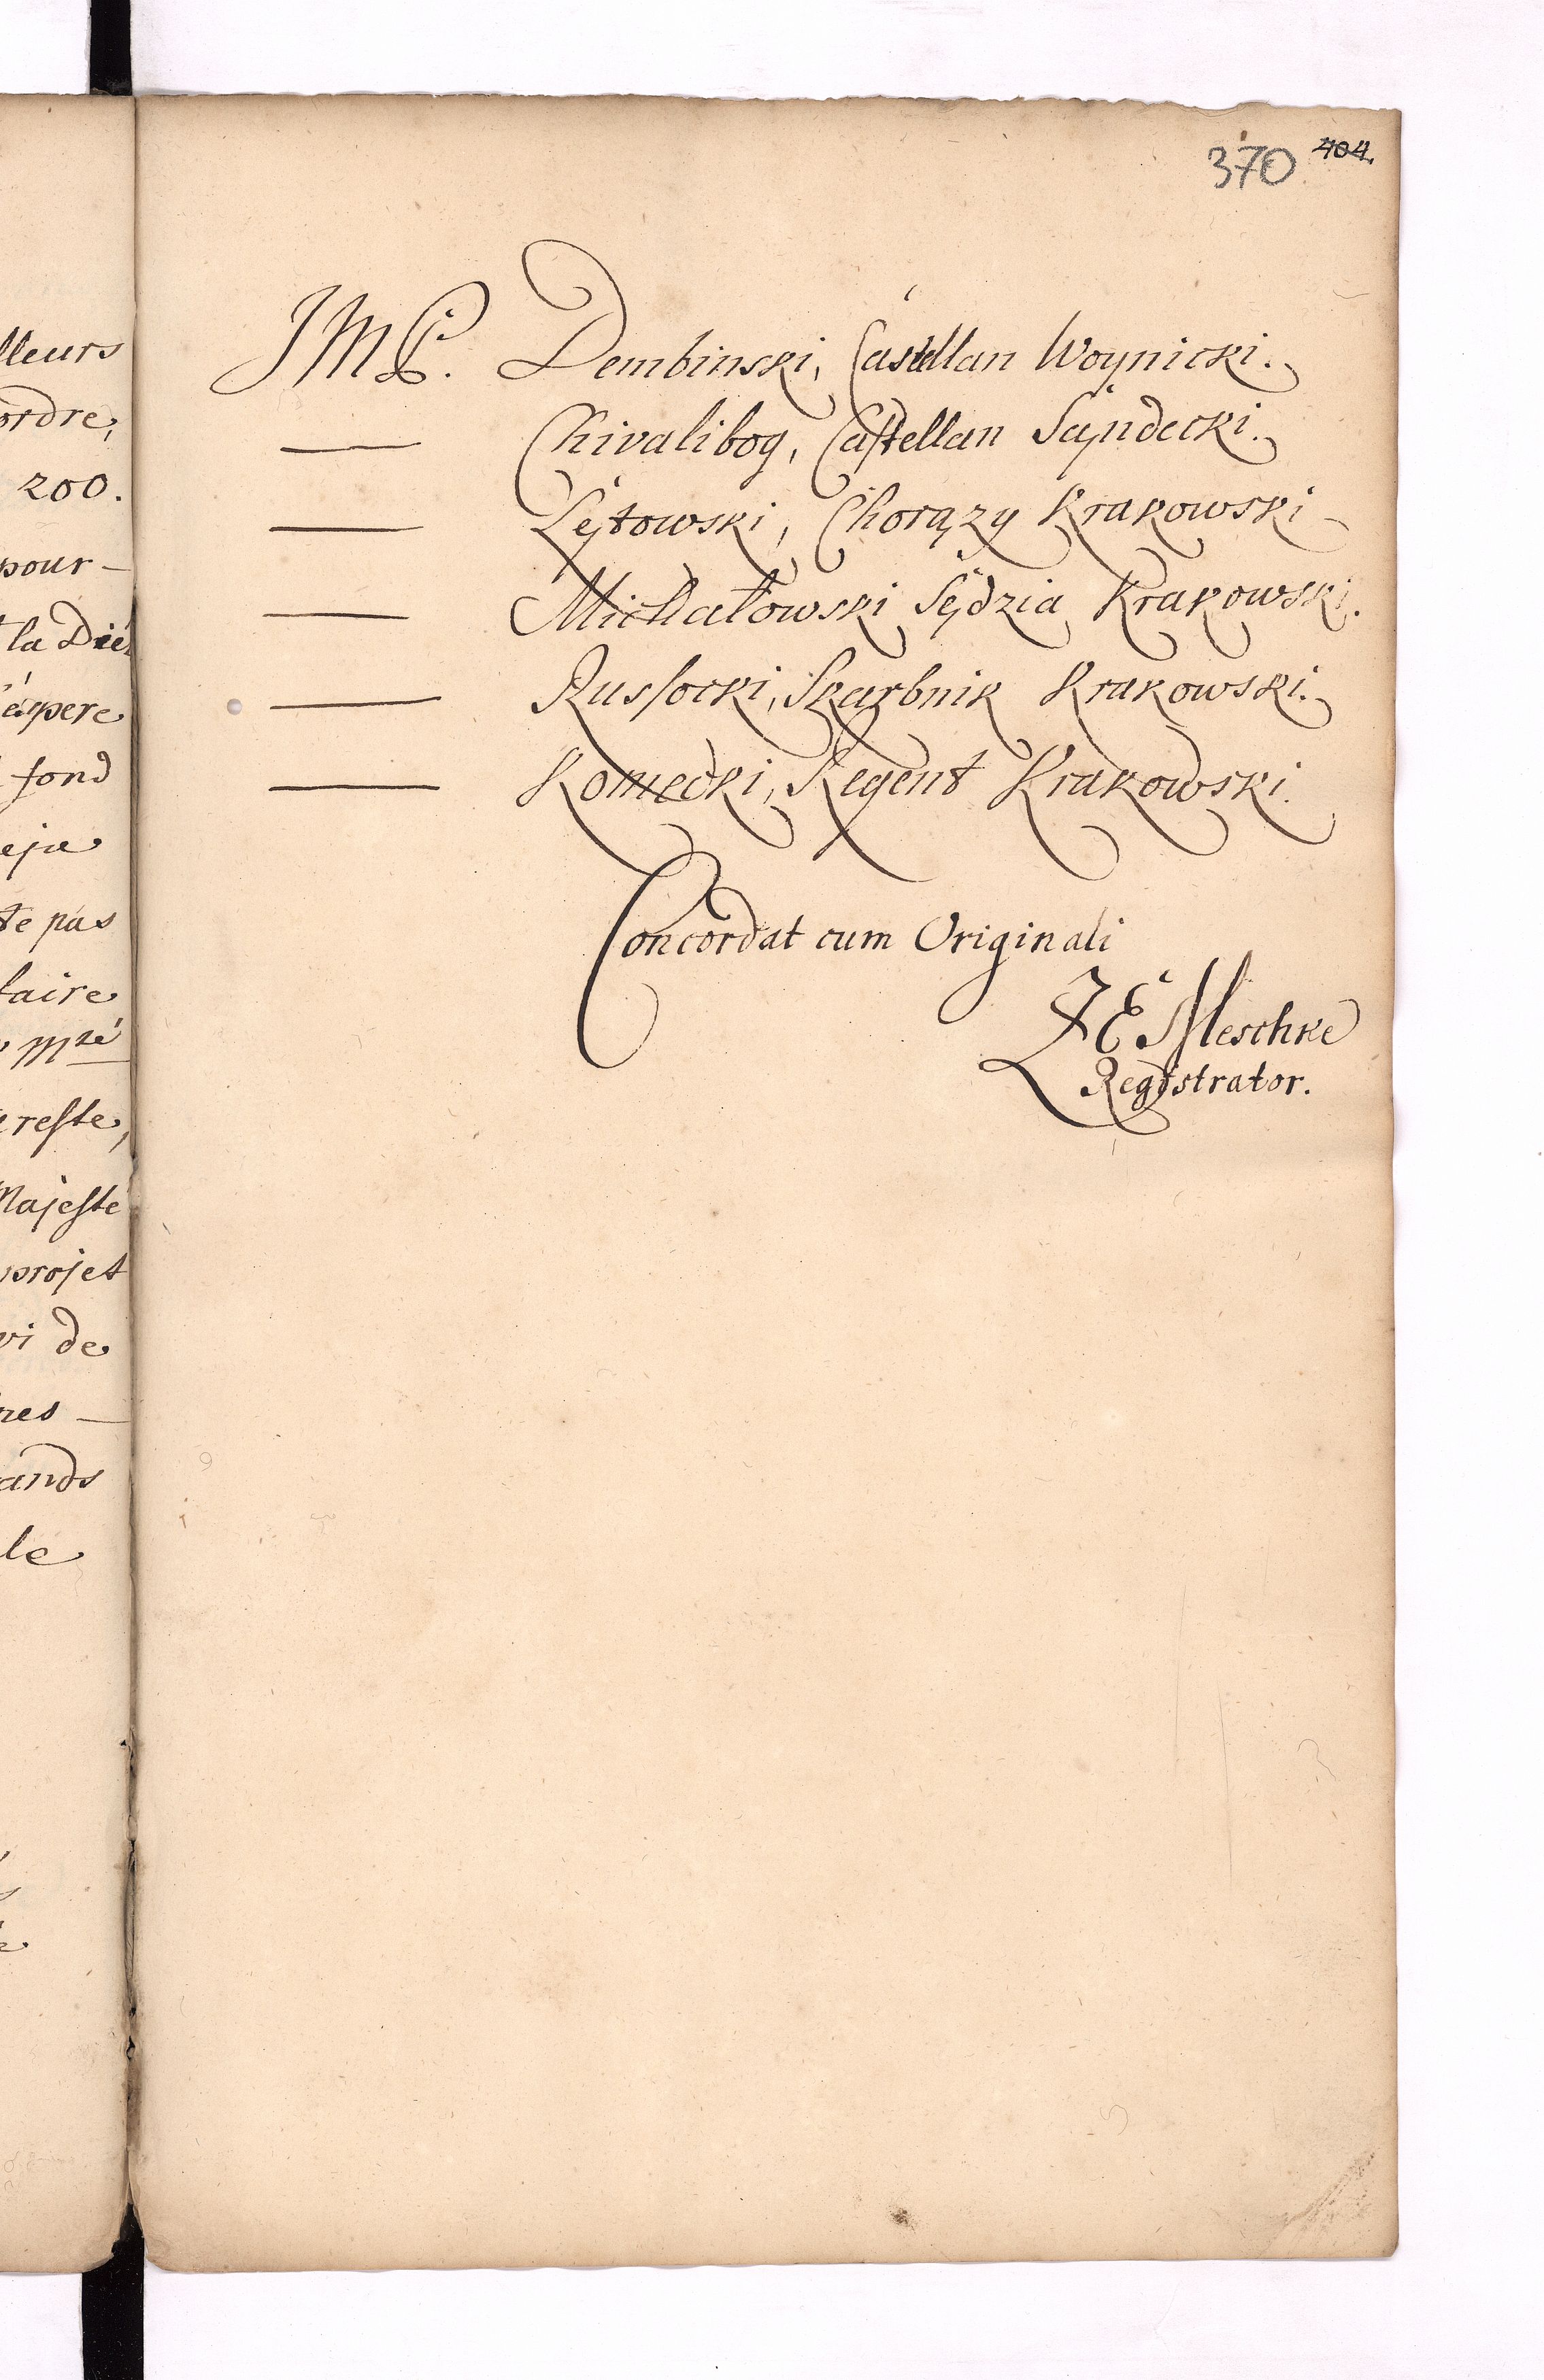 lleurs
ordre,
200.
pour-
la Dié
espere
fond
eja
te pas
faire
Mté
reste,
Majesté
projet
vi de
res
ands
le
370 404.
JMP. Dembinski, Castellan Woynicki.
— Chwalibog, Castellan Sąndecki.
— Lętowski, Chorązy Krakowski
— Michałowski Sędzia Krakowski.
— Russocki, Skarbnik Krakowski.
— Konięcki, Regent Krakowski.
Concordat cum Originali
Meschke
Registrator.